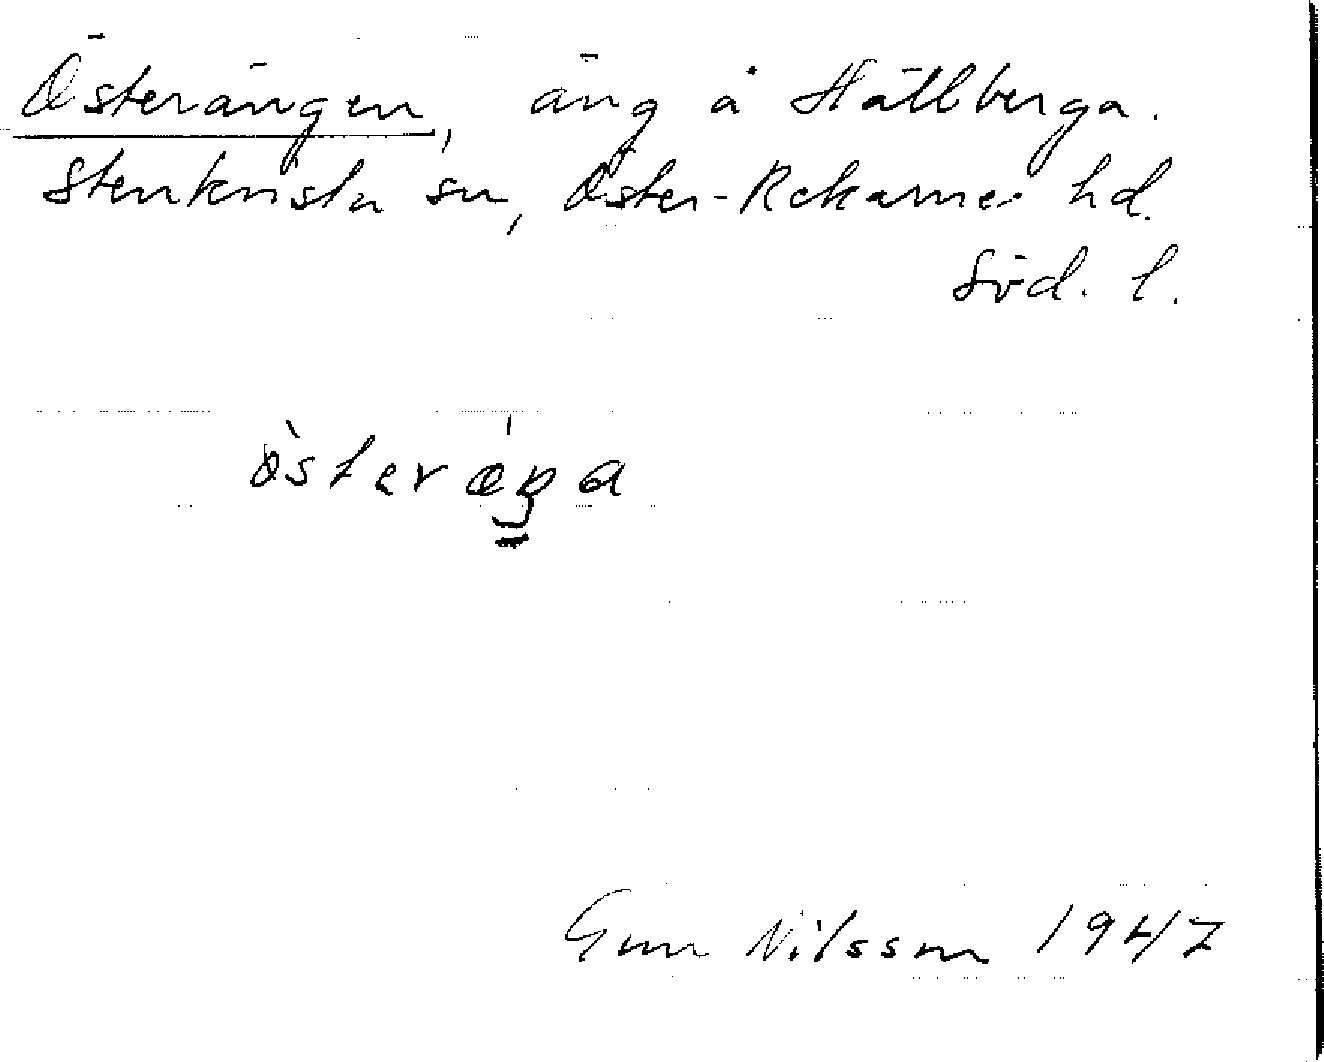 Österängen, äng å Hällberga.
Stenkvista sn, Öster-Rekarne hd.
Söd. l.
òsterǽŋa
Gun Nilsson 1947